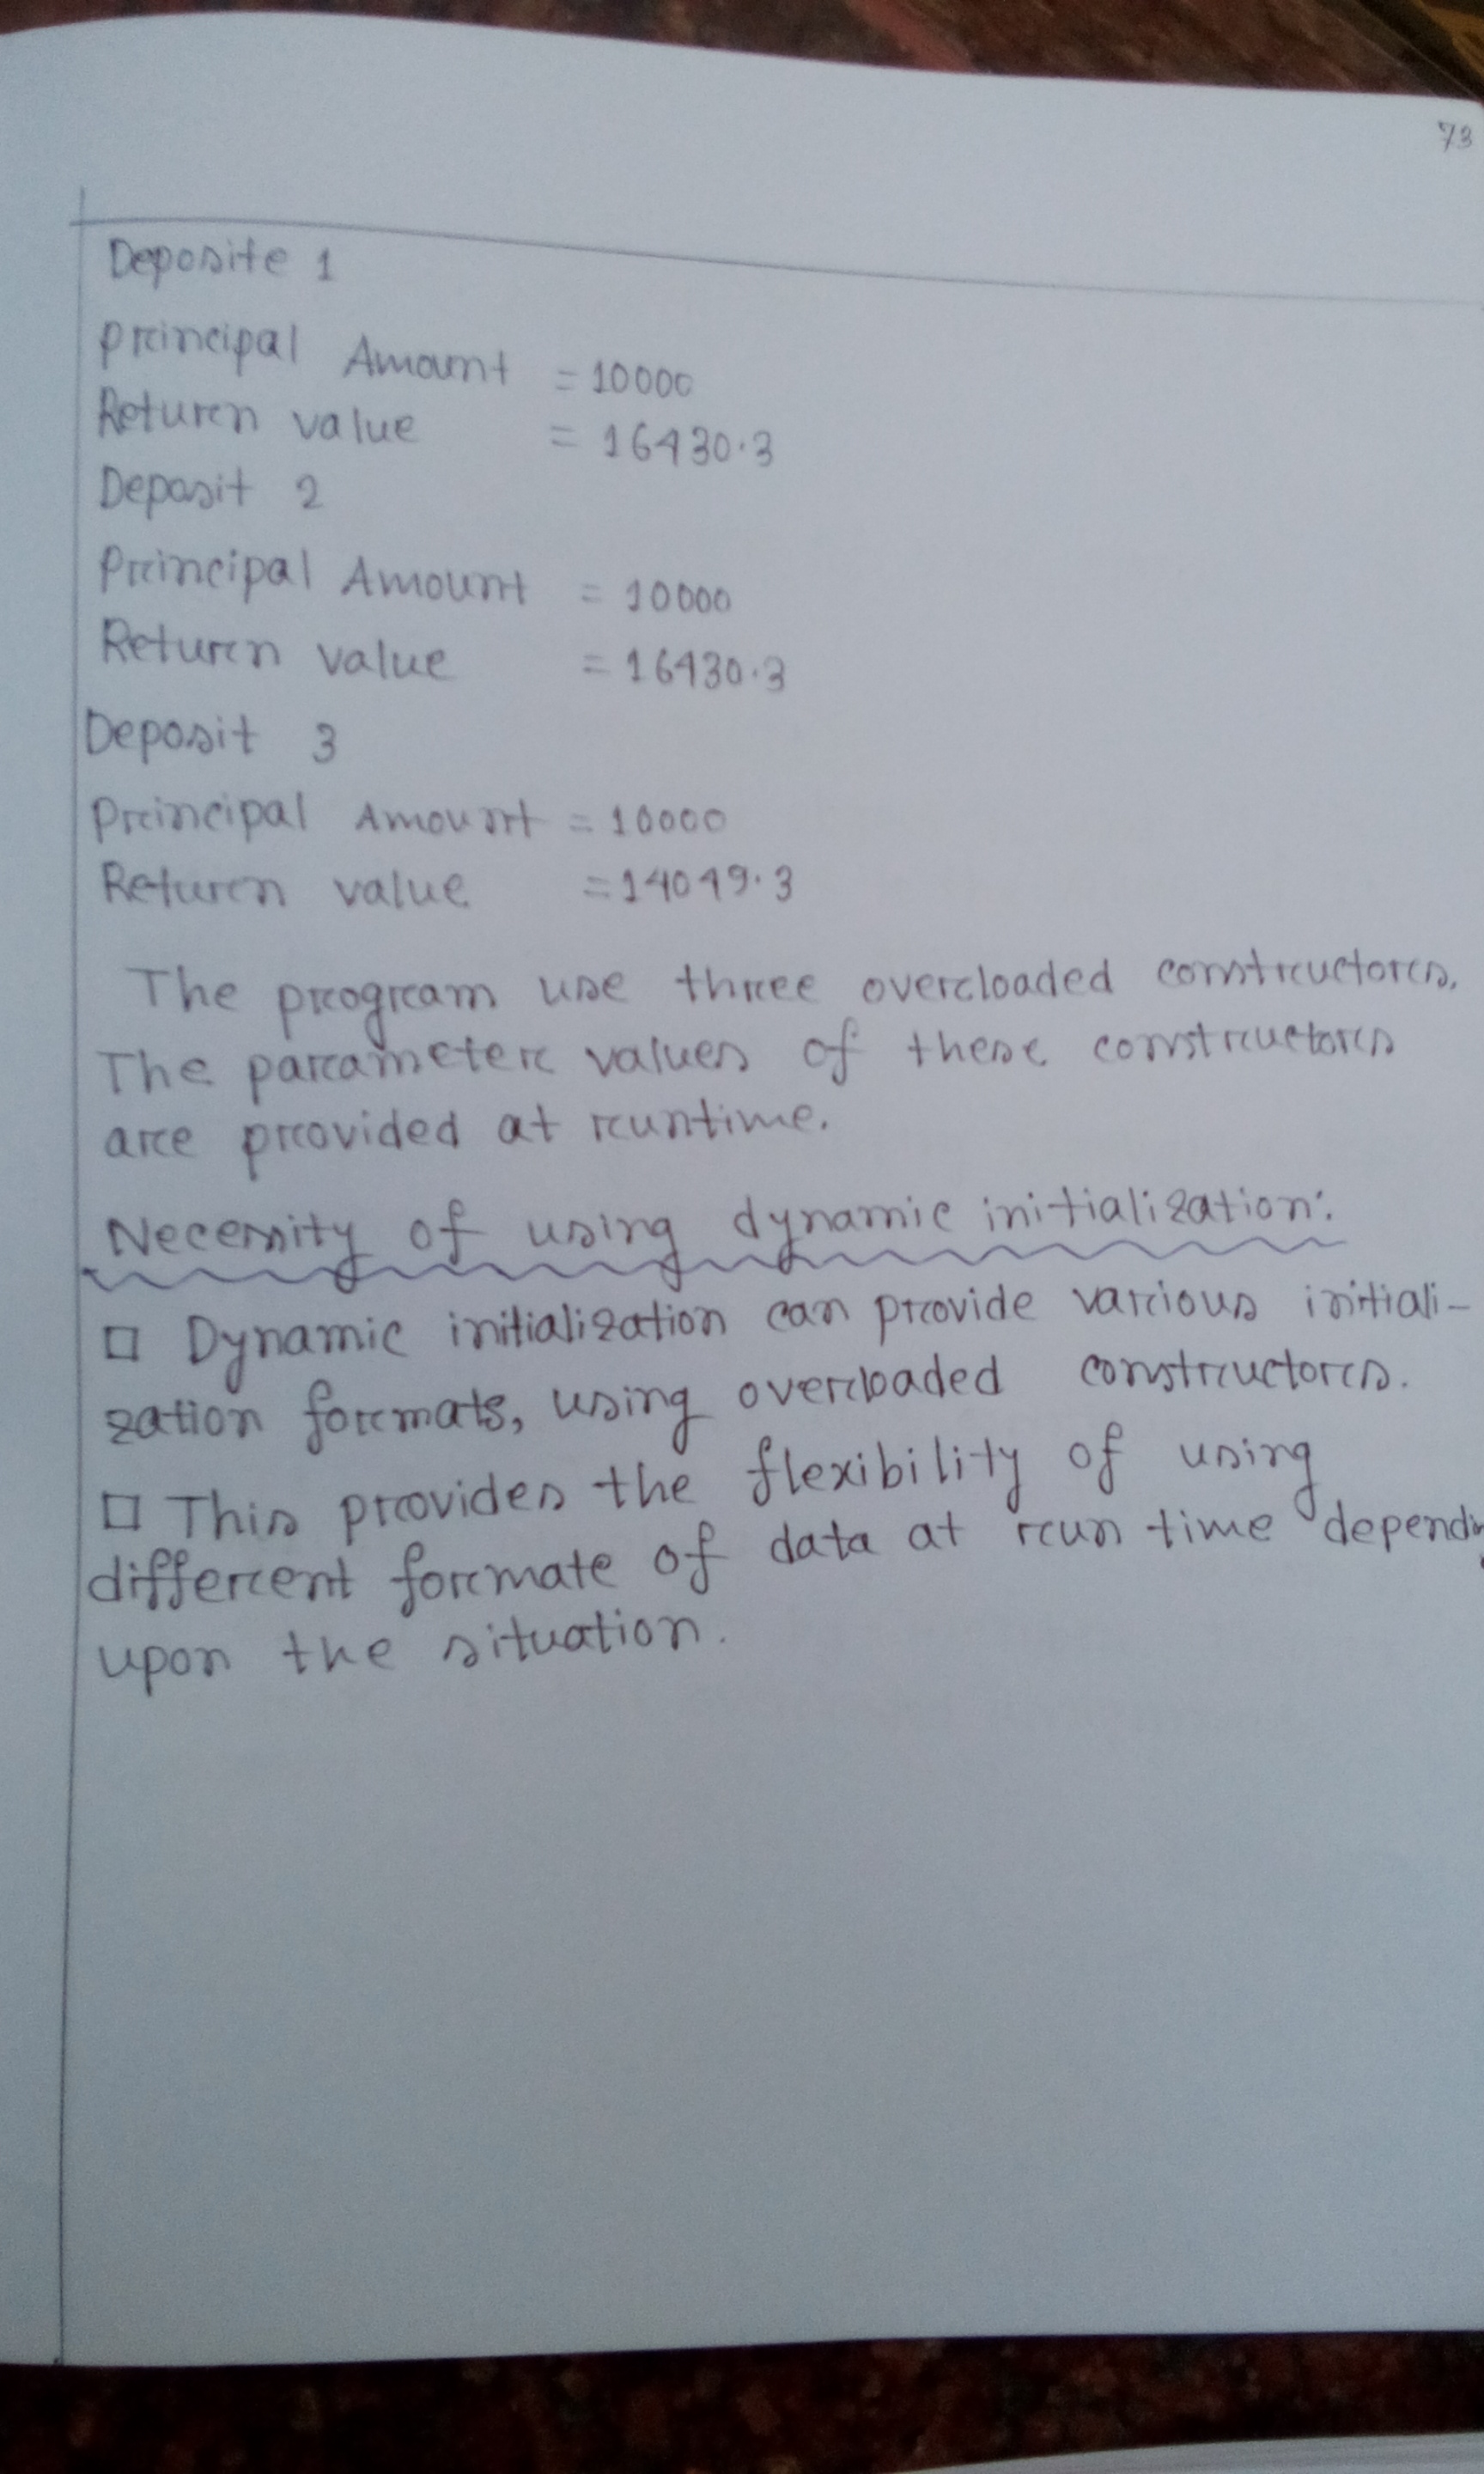 73
Deposite 1
Principal Amount = 10000
Return value = 16430.3
Deposit 2
Principal Amount = 10000
Return value = 16430.3
Deposit 3
Principal Amount = 10000
Return value = 14049.3
The program use three overloaded constructors.
The parameter values of these constructors
are provided at runtime.
Necessity of using dynamic initialization:
□ Dynamic initialization can provide various initiali-
zation formats, using overloaded constructors.
□ This provides the flexibility of using
different formate of data at run time
upon the situation.